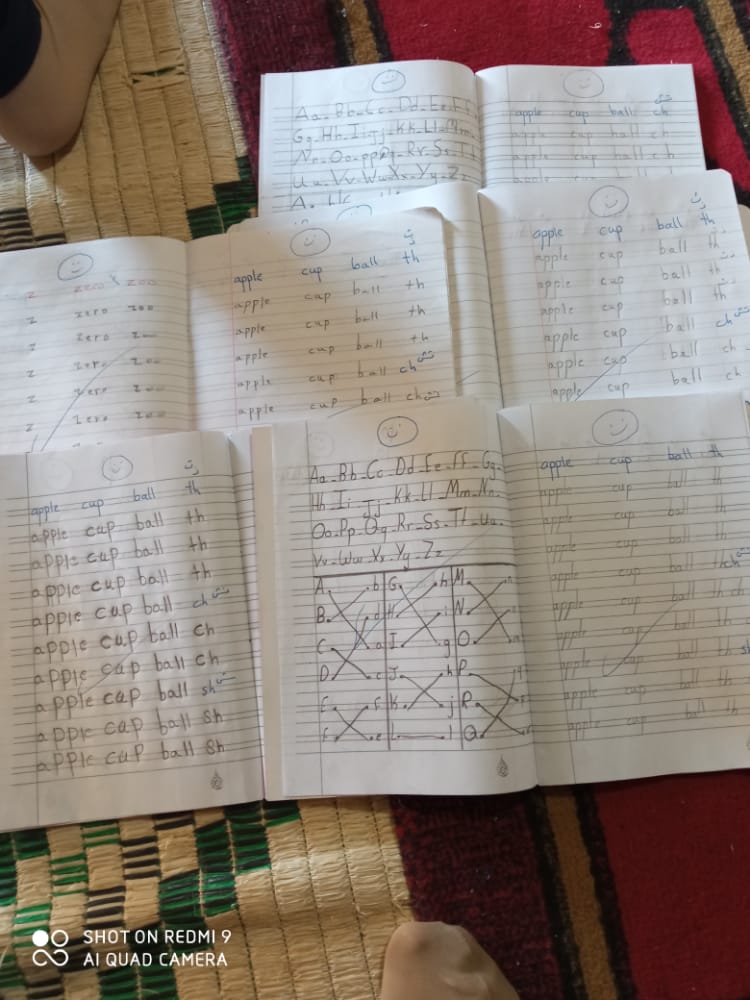 Aa - Bb - Cc - Dd - Ee - Ff
Gg - Hh - Ii - Jj - Kk - Ll - Mm
Nn - Oo - pp - Rr - Ss - Tt
Uu - Vv - Ww - Xx - Yy - Zz
ش
apple cup ball ch
apple cup ball ch
apple cup ball ch
z zero zoo
z zero zoo
z zero
z zero
z zero
z zero
ث
apple cup ball th
apple cup ball th
apple cup ball th
apple cup ball th
apple cup ball ch تش
apple cup ball ch
apple cup ball th
apple cup ball th
apple cup ball th
apple cup ball th
apple cup ball ch تش
apple cup ball ch
apple cup ball ch
ث
apple cup ball th
apple cup ball th
apple cup ball th
apple cup ball th
apple cup ball ch تش
apple cup ball ch
apple cup ball ch
apple cup ball sh ش
apple cup ball sh
apple cup ball sh
Aa - Bb - Cc - Dd - Ee - Ff - Gg -
Hh - Ii - Jj - Kk - Ll - Mm - Nn -
Oo - Pp - Qq - Rr - Ss - Tt - Uu -
Vv - Ww - Xx - Yy - Zz
A b G h M n
B d H i N o
C a I g O m
D c J h P q
E f K j R
F e L l Q
apple cup ball th
apple cup ball th
apple cup ball th
apple cup ball th
apple cup ball th ch
apple cup ball th ch
apple cup ball th
apple cup ball th sh
apple cup ball th
apple cup ball th
SHOT ON REDMI 9
AI QUAD CAMERA